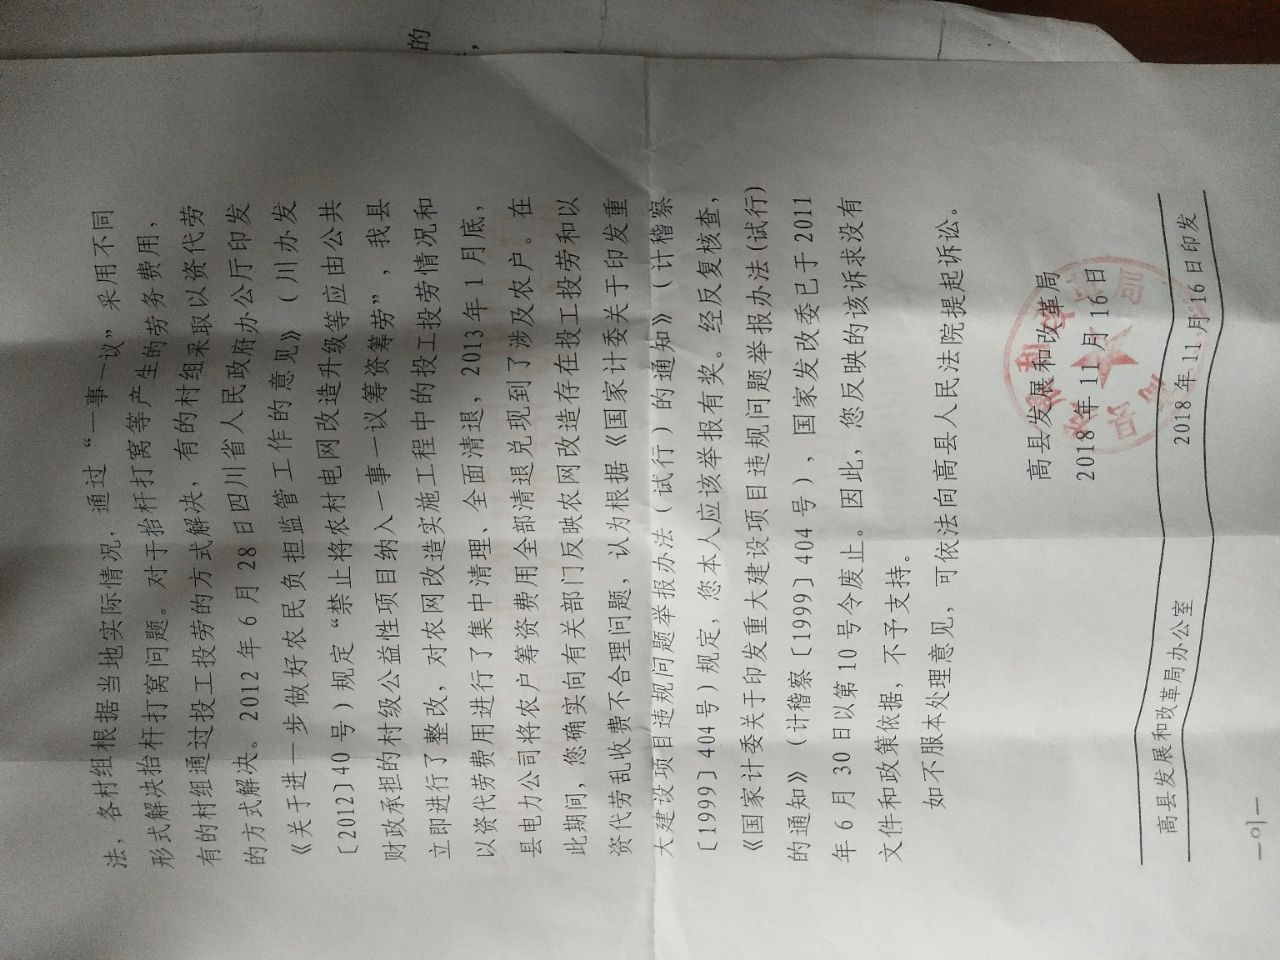 的
法，各村组根据当地实际情况，通过“一事一议”采用不同
形式解决抬杆打窝问题。对于抬杆打窝等产生的劳务费用，
有的村组通过投工投劳的方式解决，有的村组采取以资代劳
的方式解决。2012年6月28日四川省人民政府办公厅印发
《关于进一步做好农民负担监管工作的意见》（川办发
〔2012〕40号）规定“禁止将农村电网改造升级等应由公共
财政承担的村级公益性项目纳入一事一议筹资筹劳”，我县
立即进行了整改，对农网改造实施工程中的投工投劳情况和
以资代劳费用进行了集中清理、全面清退，2013年1月底，
县电力公司将农户筹资费用全部清退兑现到了涉及农户。在
此期间，您确实向有关部门反映农网改造存在投工投劳和以
资代劳乱收费不合理问题，认为根据《国家计委关于印发重
大建设项目违规问题举报办法（试行）的通知》（计稽察
〔1999〕404号）规定，您本人应该举报有奖。经反复核查，
《国家计委关于印发重大建设项目违规问题举报办法(试行)
的通知》（计稽察〔1999〕404号），国家发改委已于2011
年6月30日以第10号令废止。因此，您反映的该诉求没有
文件和政策依据，不予支持。
如不服本处理意见，可依法向高县人民法院提起诉讼。
高县发展和改革局
2018年11月16日
高县发展和改革局办公室 2018年11月16日印发